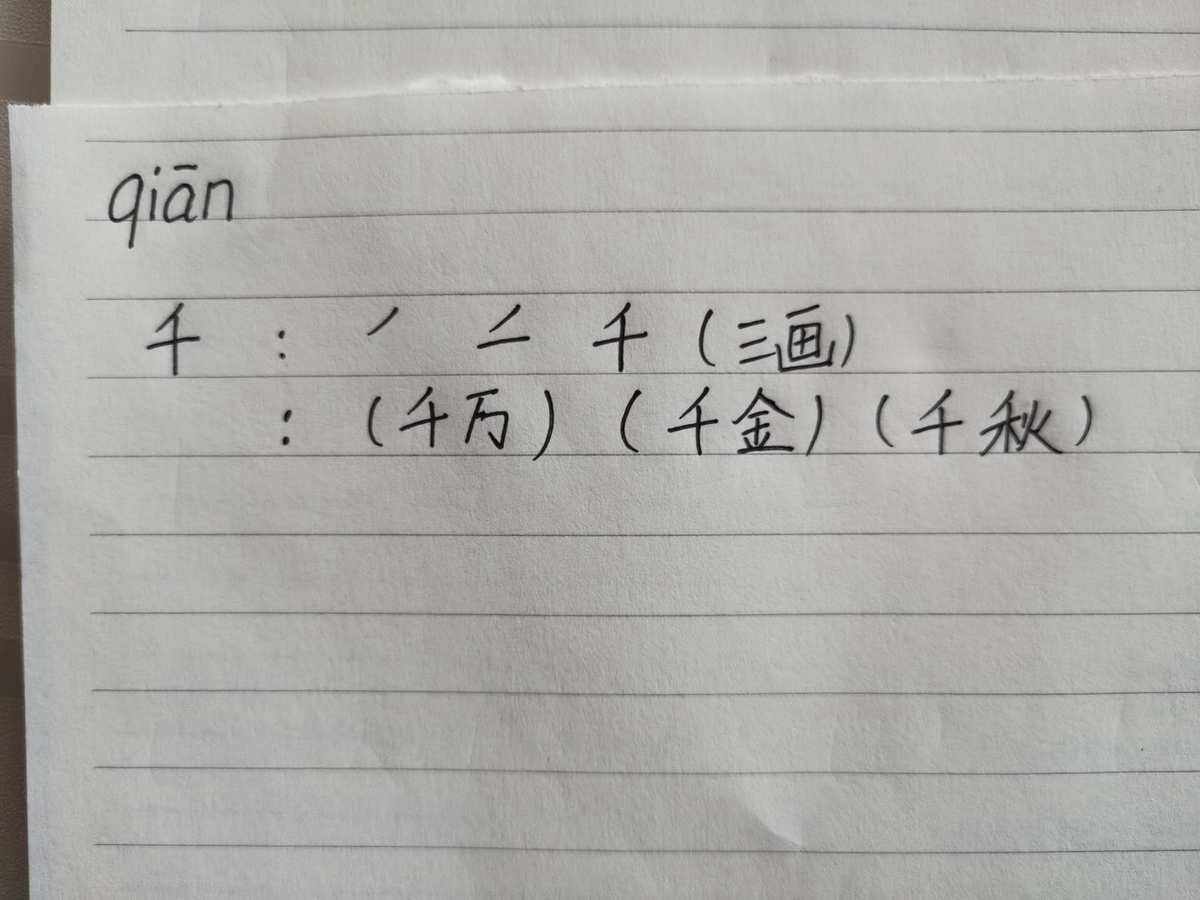 qiān
千 : ㇒ 𠂉 千 (三画)
: (千万) (千金) (千秋)